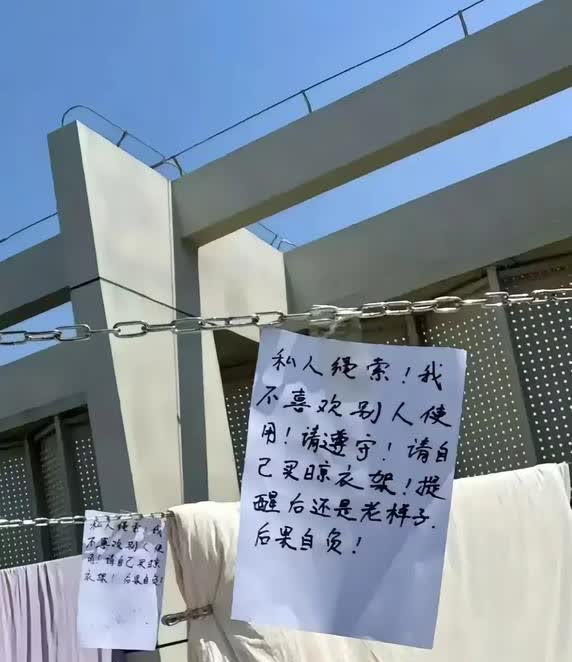 私人绳索！我
不喜欢别人使
用！请遵守！请自
己买晾衣架！提
醒后还是老样子.
后果自负！
私人绳索！我
不喜欢别人使
用！请自己买晾
衣架！后果自负！